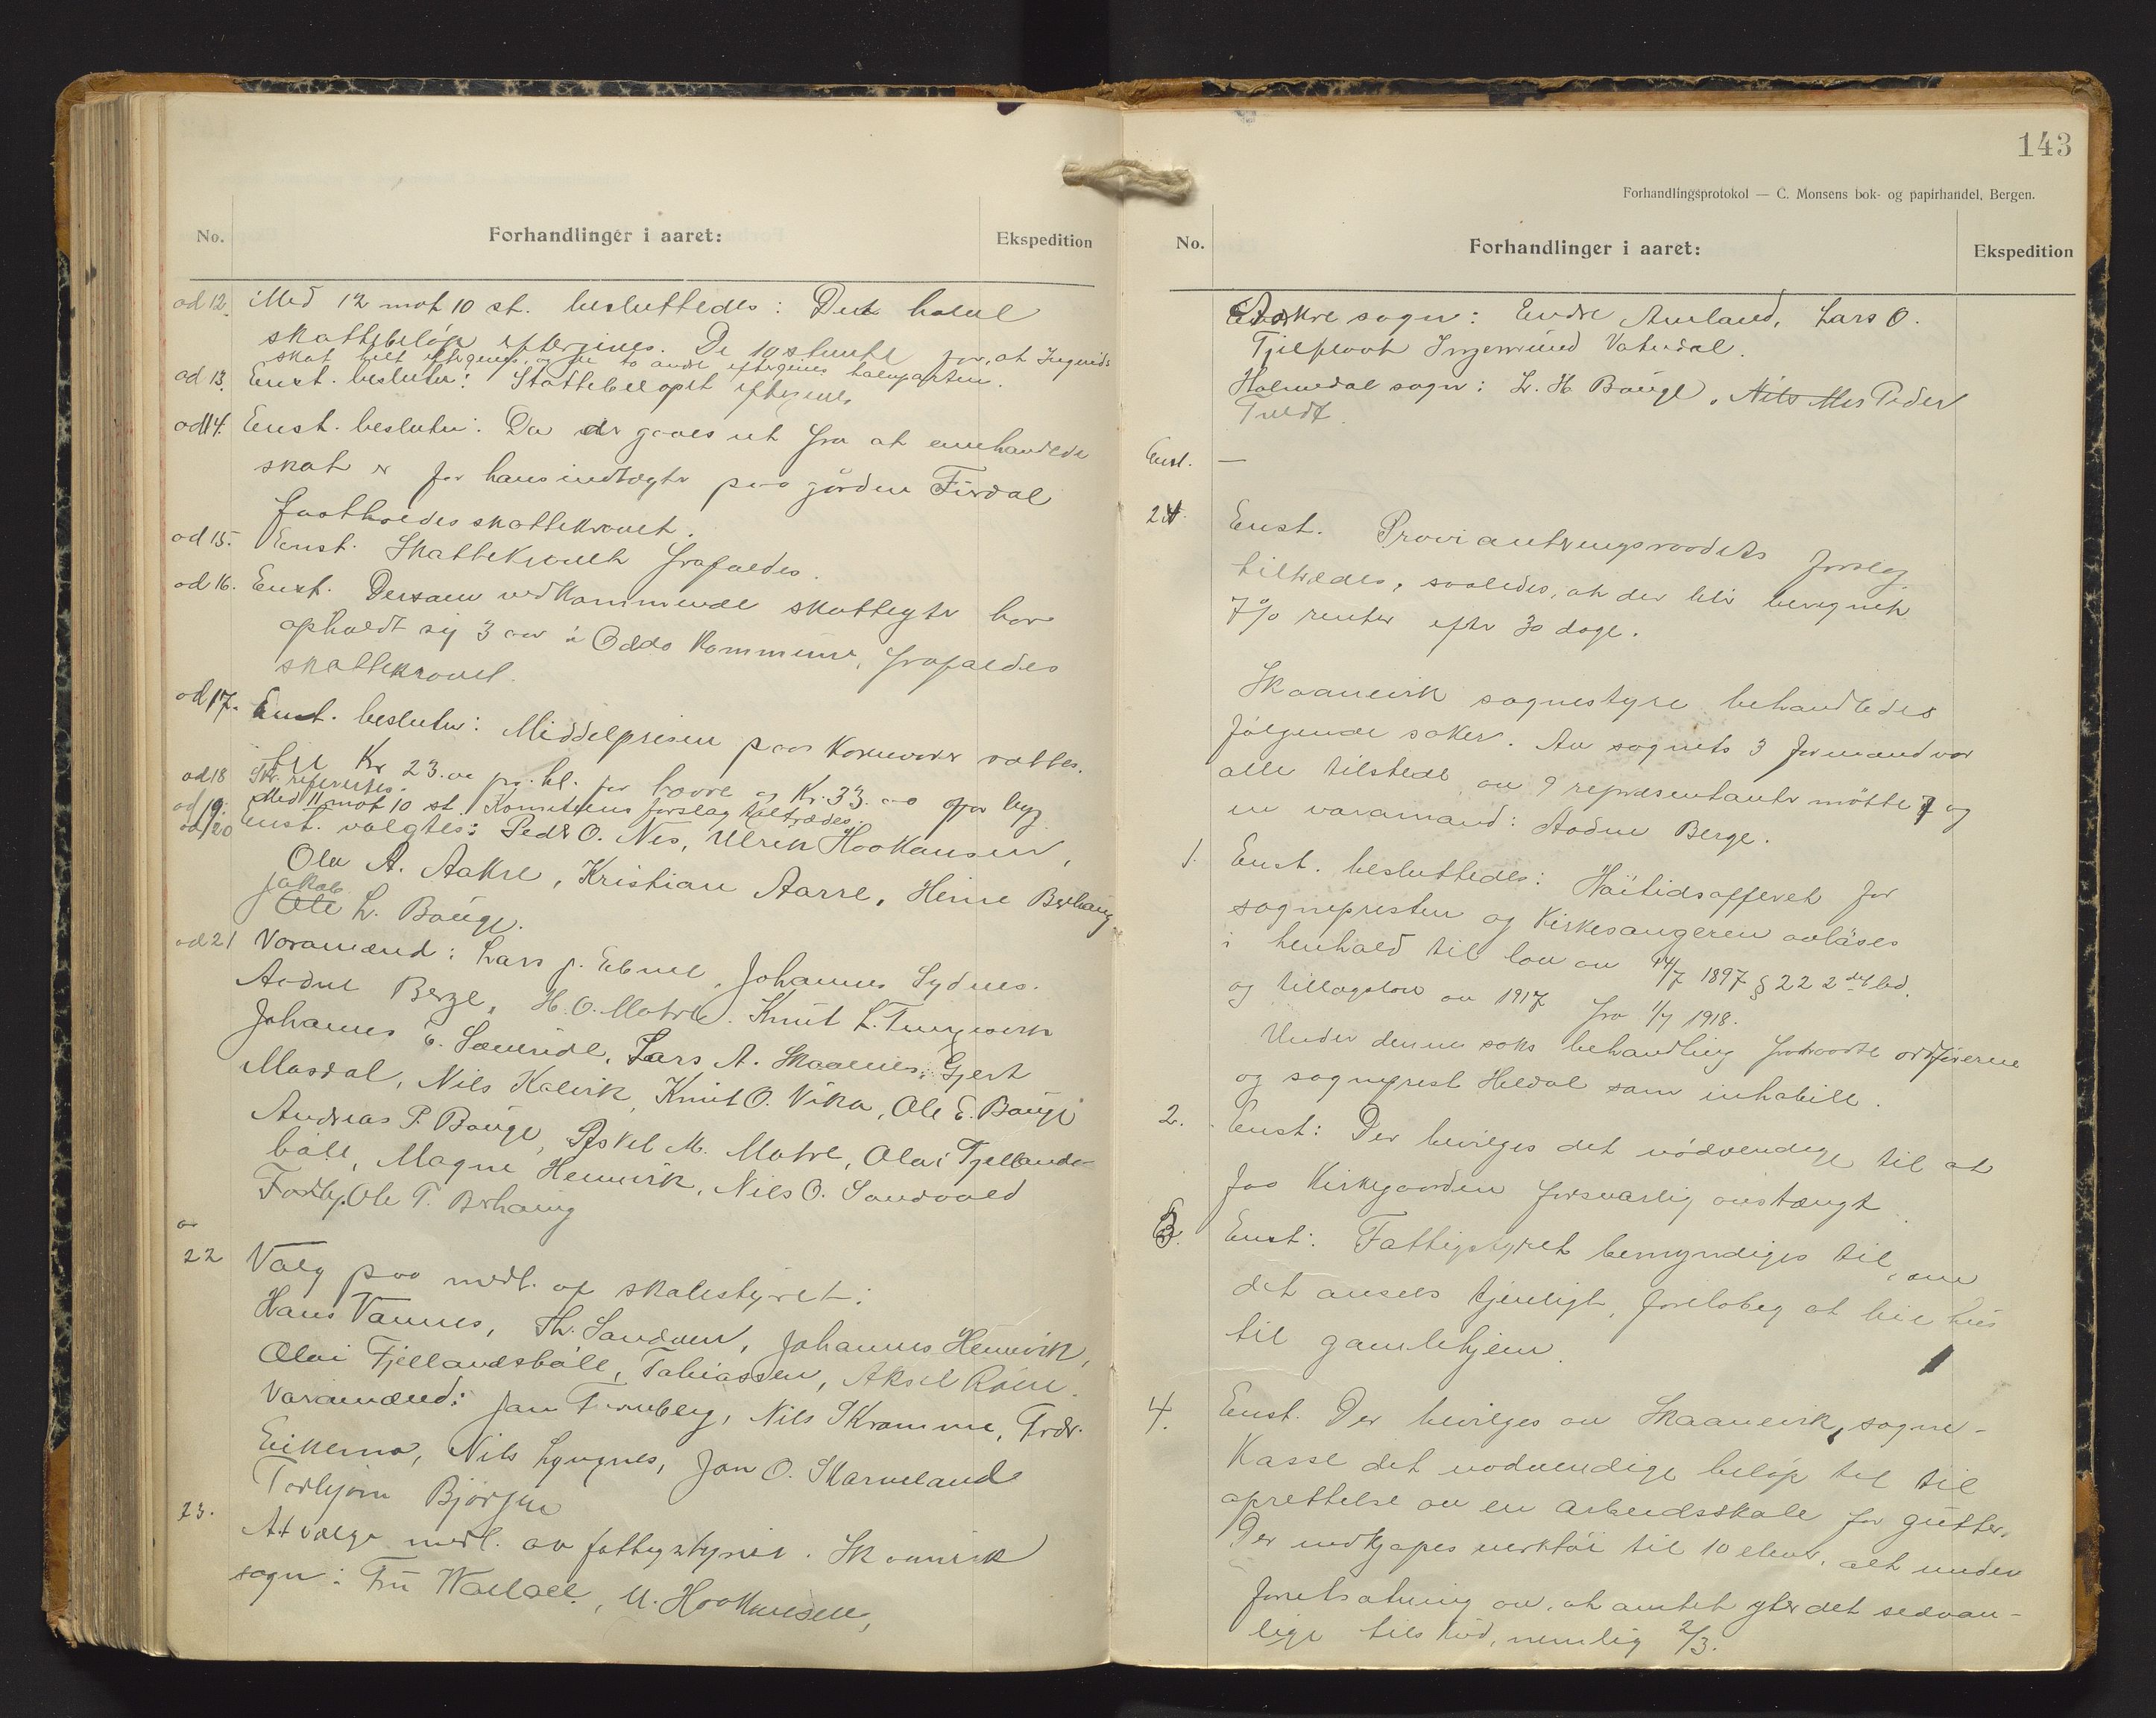 No.
Forhandlinger i aaret:
Ekspedition
ad 12. Med 12 mot 10 st. besluttedes: Det halve
skattebeløp eftergives. De 10 stemte for, at Ingrids
skat helt eftergives, og de to andre eftergives halvparten.
ad 13. Enst. beslutn: Skattebeløpet eftergives
ad 14. Enst. beslutn: Da der gaaes ut fra at omhandlede
skat er for hans indtægter paa gården Fürdal
fastholdes skattekravet.
ad 15. Enst. Skattekravet frafaldes.
ad 16. Enst. Dersom vedkommende skatteyter har
opholdt sig 3 aar i Odda kommune, frafaldes
skattekravet.
ad 17. Enst. beslutn: Middelprisen paa kornvarer sattes
til Kr 23.00 pr. hl. for havre og Kr. 33.00 for byg
ad 18 Skr. refereres.
ad 19. Med 11 mot 10 st. Komiteens forslag tiltrædes.
ad 20 Enst. valgtes: Peder O. Nes, Ulrik Haakansen,
Ola A. Aakre, Kristian Aarre, Heine Berhaug
Jakob
Ole L. Bauge.
ad 21 Varamænd: Lars J. Ebne, Johannes Sydnes.
Aadne Berge, H. O. Matre. Knut L. Tungesvik
Johannes E. Sævride, Lars A. Skaanes, Gjert
Masdal, Nils Kalvik, Knut O. Vika, Ole E. Bauge
Andreas P. Bauge, Askel M. Matre, Olai Fjellands-
bøle, Magne Hemvik, Nils O. Sandvold
Ole T. Berhaug
22 Valg paa medl. af skolestyret:
Hans Vannes, Th. Sandven, Johannes Hemvik,
Olai Fjellandsbøle, Tobiassen, Aksel Røen.
Varamænd: Jan Turnberg, Nils Skramme, Fredr.
Eikemo, Nils Lyngnes, Jan O. Skarveland
Torbjørn Bjørgen
23. At vælge medl. av fattigstyret. Skaanevik
sogn: Fru Wallace, U. Haakansen,
143
Forhandlingsprotokol — C. Monsens bok- og papirhandel, Bergen.
No.
Forhandlinger i aaret:
Ekspedition
Aakre sogn: Endre Amland, Lars O.
Fjelflaat Ingemund Vatndal.
Holmedal sogn: L. H Bauge, Nils Mes Peder
Tvedt.
Enst. —
24. Enst. Provianteringsraadets forslag
tiltrædes, saaledes, at der blir beregnet
7% renter efter 30 dage.
Skaanevik sognestyre behandledes
følgende saker. Av sognets 3 formænd var
alle tilstede av 9 repræsentanter møtte 7 og
en varamand: Aadne Berge.
1. Enst. besluttedes: Høitidsofferet for
sognepresten og kirkesangeren avløses
i henhold til lov av 14/7 1897 § 22 2det led.
og tillægslov av 1917 fra 1/7 1918.
Under denne saks behandling fratraadte ordføreren
og sogneprest Heldal som inhabile.
2. Enst: Der bevilges det nødvendige til at
faa kirkegaarden forsvarlig avstængt.
3. Enst: Fattigstyret bemyndiges til, om
det ansees tjenligt, foreløbig at leie hus
til gamlehjem.
4. Enst. Der bevilges av Skaanevik sogne-
kasse det nødvendige beløp til til
oprettelse av en arbeidsskole for gutter.
Der indkjøpes verktøi til 10 elever, alt under
forutsætning av, at amtet yter det sedvan-
lige tilskud, nemlig 2/3.